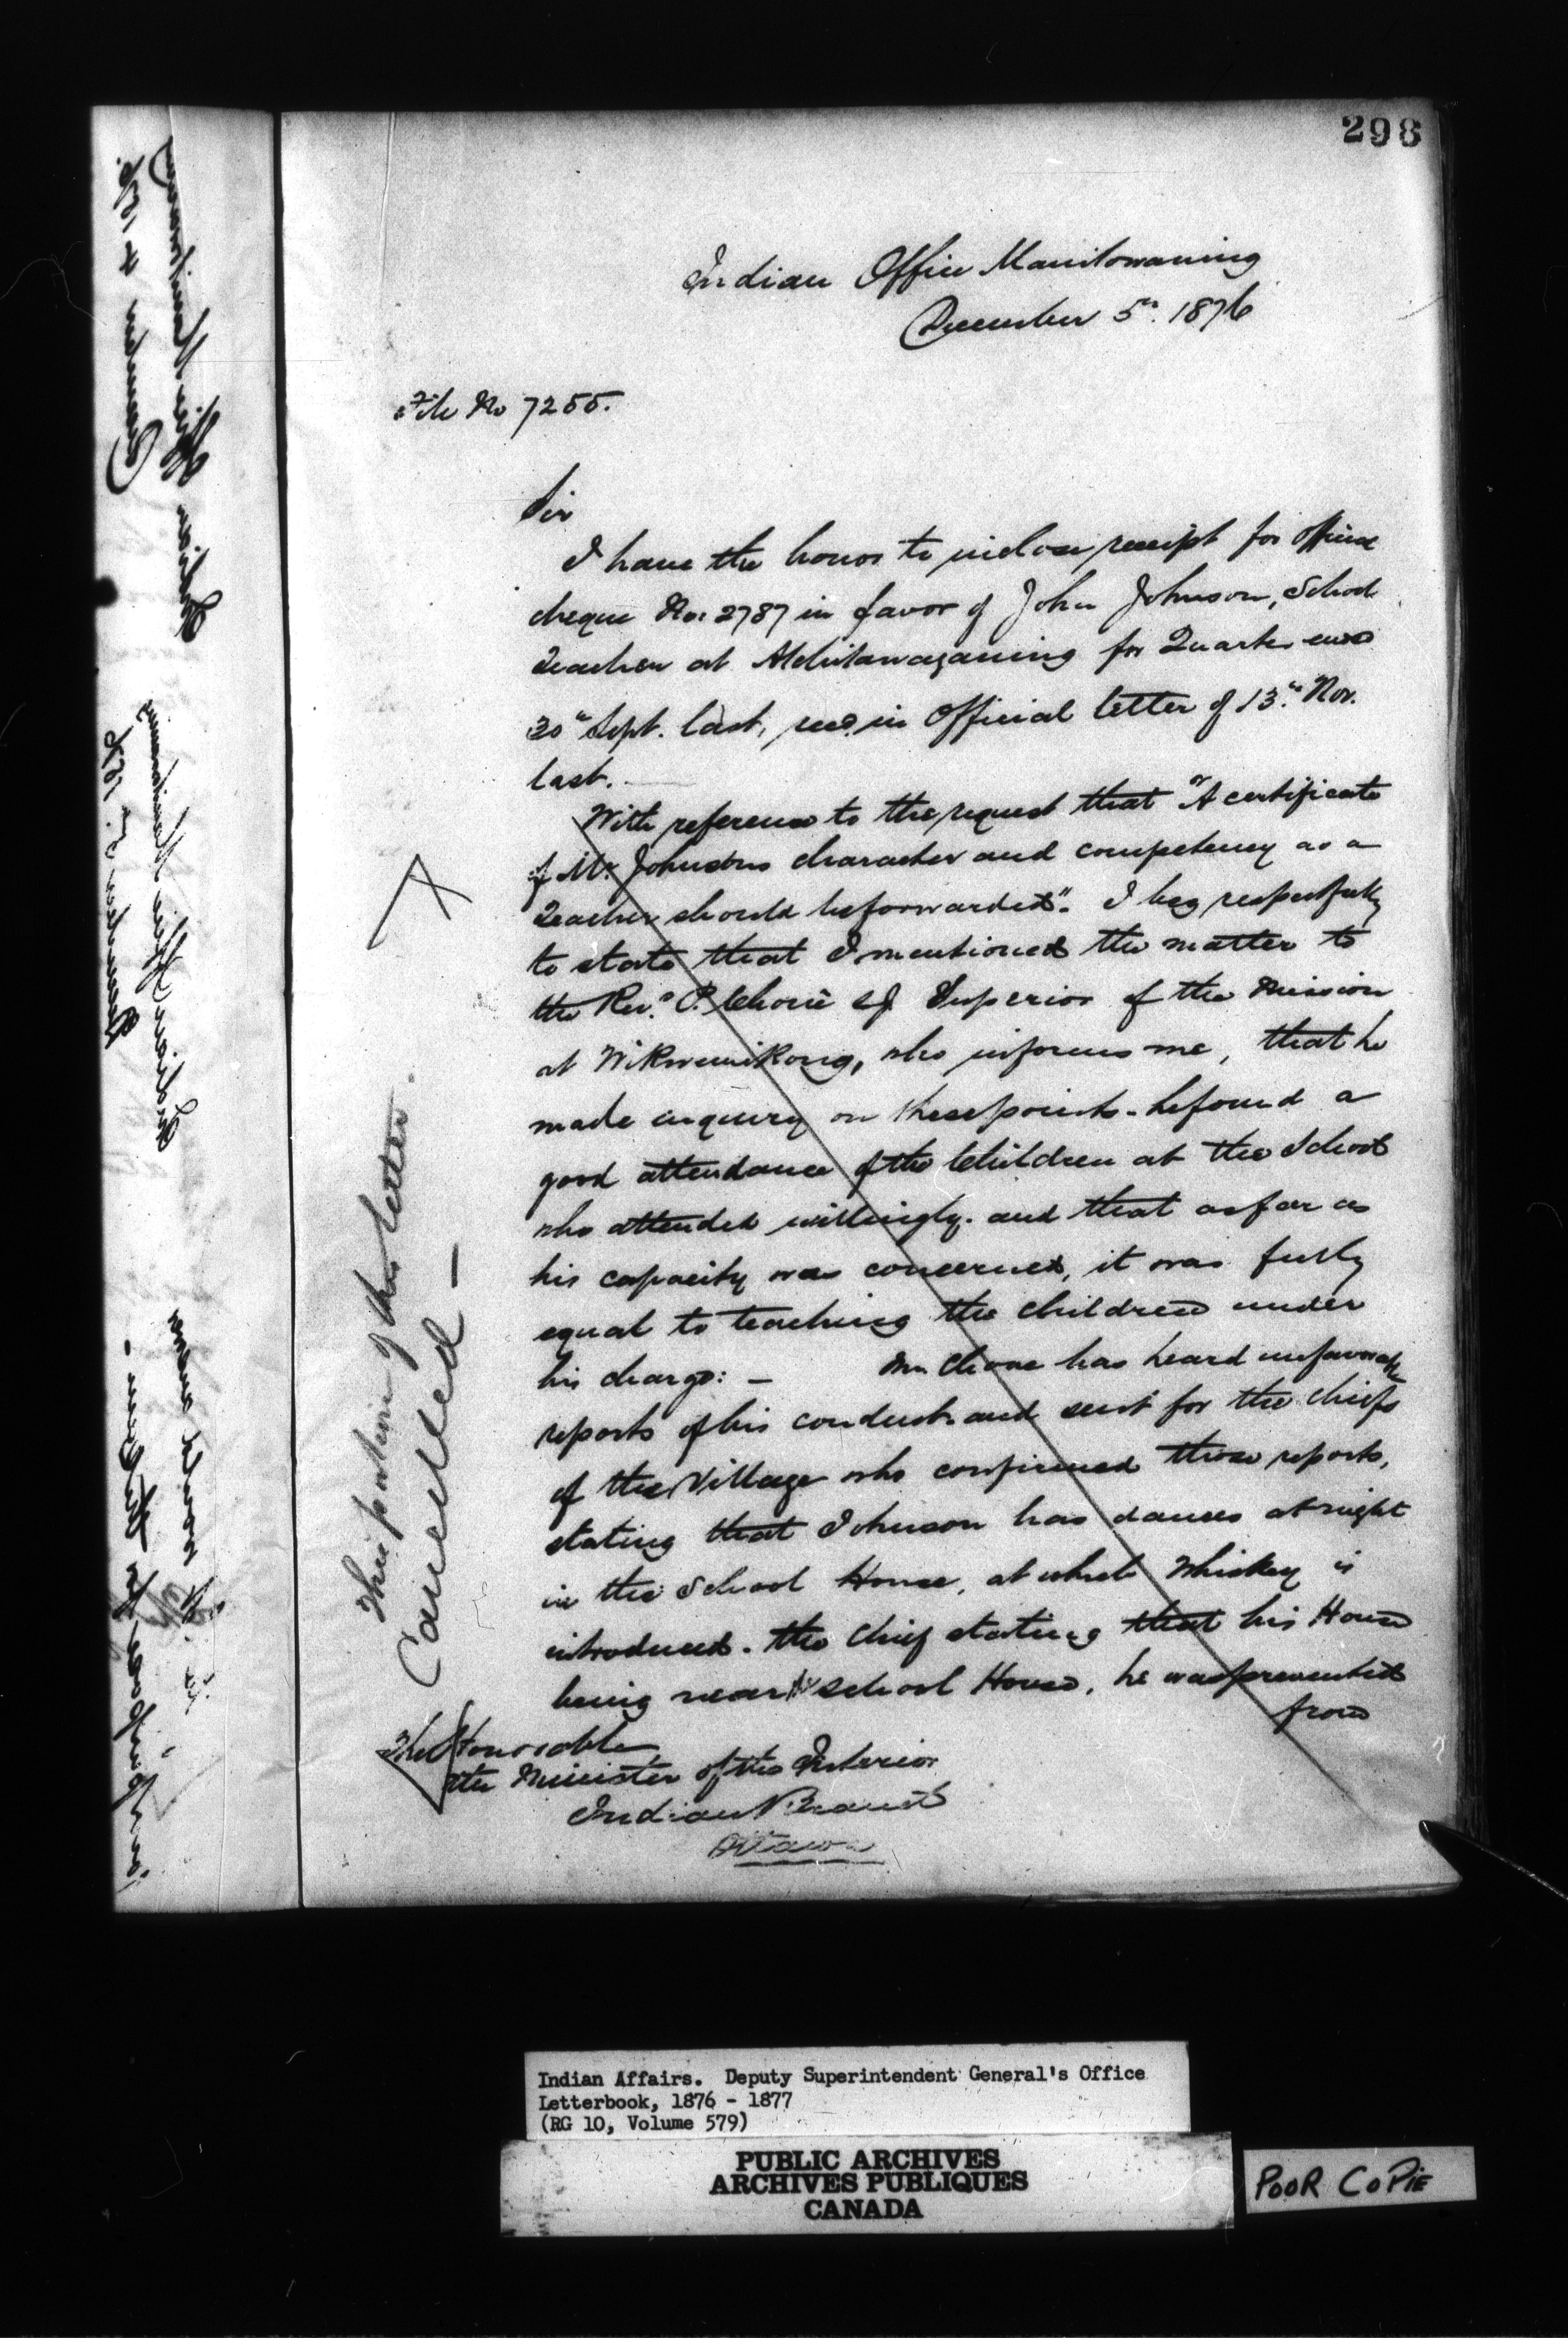 298
Indian Office Manitowaning
December 5th. 1876
File No 7255.
Sir
I have the honor to inclose receipt for official
cheque No. 2787 in favor of John Johnson, School
Teacher at Atchitawaganing for Quarter end
30th Sept. last, recd. in Official letter of 13th. Nov.
last.
With reference to the request that "A certificate
of Mr Johnsons character and competency as a
Teacher should be forwarded". I beg respectfully
to state that I mentioned the matter to
the Revd. P. Choné SJ Superior of the Mission
at Wikwemikong, who informs me, that he
made inquiry on these points. he found a
good attendance of the Children at the School
who attended willingly. and that as far as
his capacity was concerned, it was fully
equal to teaching the children under
his charge: — Mr. Chone has heard unfavorable
reports of his conduct and sent for the Chiefs
of the Village who confirmed those reports,
stating that Johnson has dances at night
in the School House, at which Whiskey is
introduced. the Chief stating that his House
being near the School House, he was prevented
from
The Honorable
the Minister of the Interior
Indian Branch
Ottawa
This portion of this letter
Cancelled —
Indian Affairs. Deputy Superintendent General's Office
Letterbook, 1876 - 1877
(RG 10, Volume 579)
PUBLIC ARCHIVES
ARCHIVES PUBLIQUES
CANADA
POOR COPIE